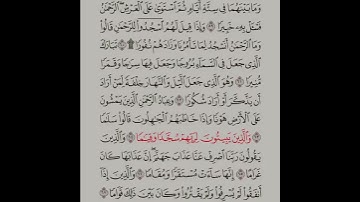 وَمَا بَيْنَهُمَا فِي سِتَّةِ أَيَّامٍ ثُمَّ ٱسْتَوَىٰ عَلَى ٱلْعَرْشِ ٱلرَّحْمَٰنُ
فَسْـَٔلْ بِهِۦ خَبِيرًا ۝٥٩ وَإِذَا قِيلَ لَهُمُ ٱسْجُدُوا۟ لِلرَّحْمَٰنِ قَالُوا۟
وَمَا ٱلرَّحْمَٰنُ أَنَسْجُدُ لِمَا تَأْمُرُنَا وَزَادَهُمْ نُفُورًا ۩ ۝٦٠ تَبَارَكَ
ٱلَّذِي جَعَلَ فِي ٱلسَّمَآءِ بُرُوجًا وَجَعَلَ فِيهَا سِرَٰجًا وَقَمَرًا
مُّنِيرًا ۝٦١ وَهُوَ ٱلَّذِي جَعَلَ ٱلَّيْلَ وَٱلنَّهَارَ خِلْفَةً لِّمَنْ أَرَادَ
أَن يَذَّكَّرَ أَوْ أَرَادَ شُكُورًا ۝٦٢ وَعِبَادُ ٱلرَّحْمَٰنِ ٱلَّذِينَ يَمْشُونَ
عَلَى ٱلْأَرْضِ هَوْنًا وَإِذَا خَاطَبَهُمُ ٱلْجَٰهِلُونَ قَالُوا۟ سَلَٰمًا
۝٦٣ وَٱلَّذِينَ يَبِيتُونَ لِرَبِّهِمْ سُجَّدًا وَقِيَٰمًا ۝٦٤ وَٱلَّذِينَ
يَقُولُونَ رَبَّنَا ٱصْرِفْ عَنَّا عَذَابَ جَهَنَّمَ إِنَّ عَذَابَهَا كَانَ
غَرَامًا ۝٦٥ إِنَّهَا سَآءَتْ مُسْتَقَرًّا وَمُقَامًا ۝٦٦ وَٱلَّذِينَ إِذَآ
أَنفَقُوا۟ لَمْ يُسْرِفُوا۟ وَلَمْ يَقْتُرُوا۟ وَكَانَ بَيْنَ ذَٰلِكَ قَوَامًا ۝٦٧